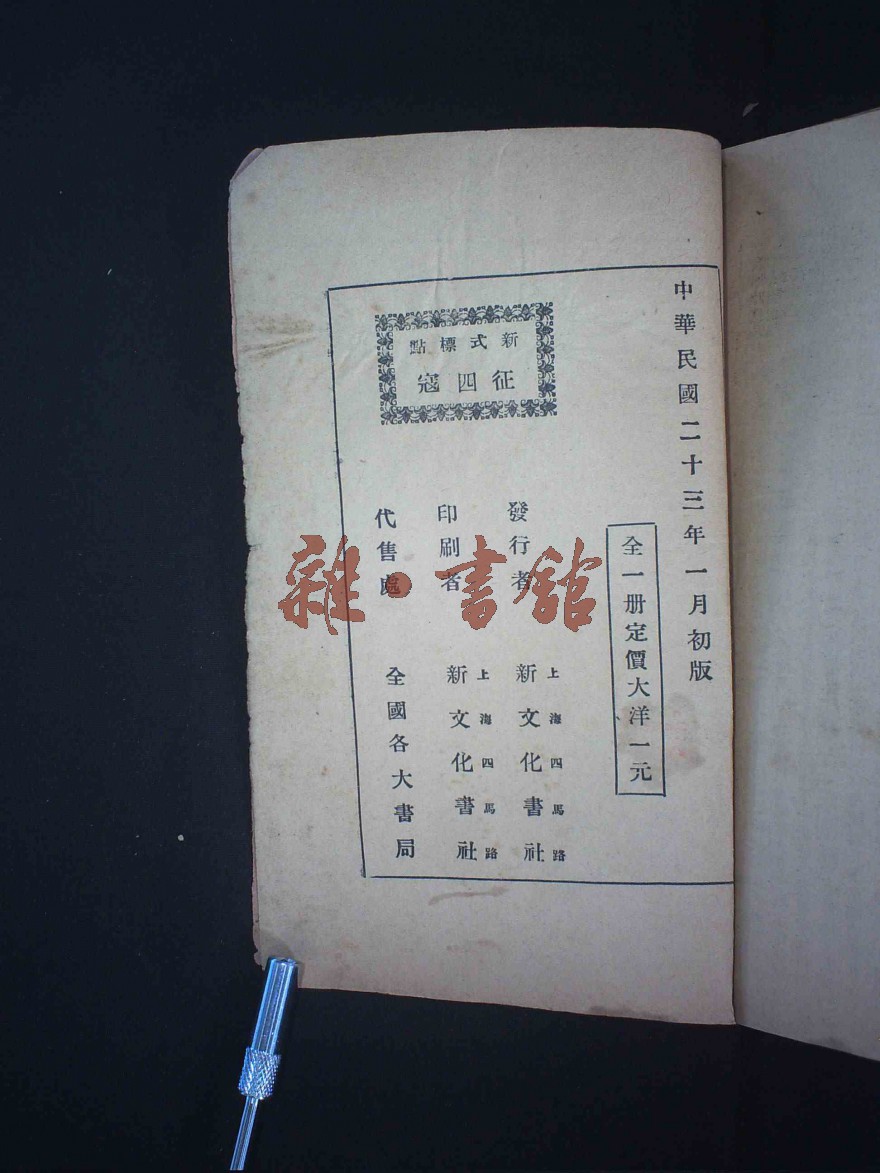 中華民國二十三年一月初版
全一册定價大洋一元
新式標點
征四寇
發行者
上海四馬路
新文化書社
印刷者
上海四馬路
新文化書社
代售處
全國各大書局
雜·書館